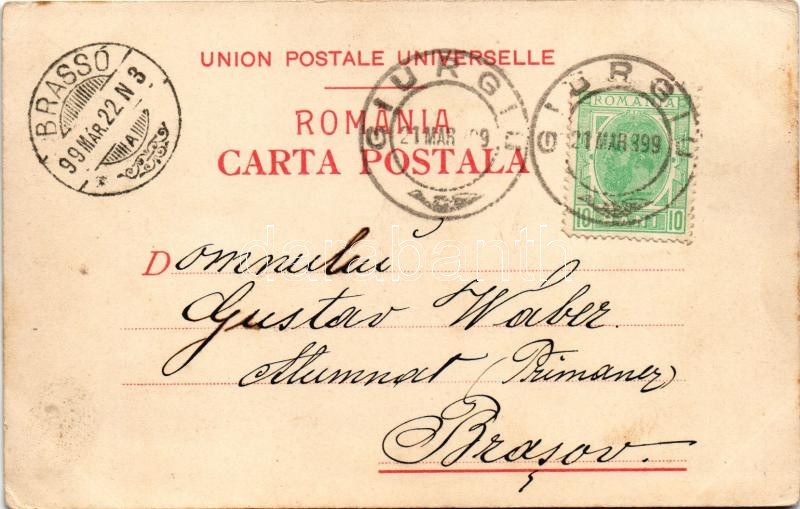 UNION POSTALE UNIVERSELLE
ROMANIA
CARTA POSTALA
BRASSÓ
99 MÁR. 22. N 3
A
GIURGIU
21 MAR 99
GIURGIU
21 MAR 899
ROMANIA
10 10
Domnului
Gustav Waber.
Alumnat (Primaner)
Brașov.
darabanth